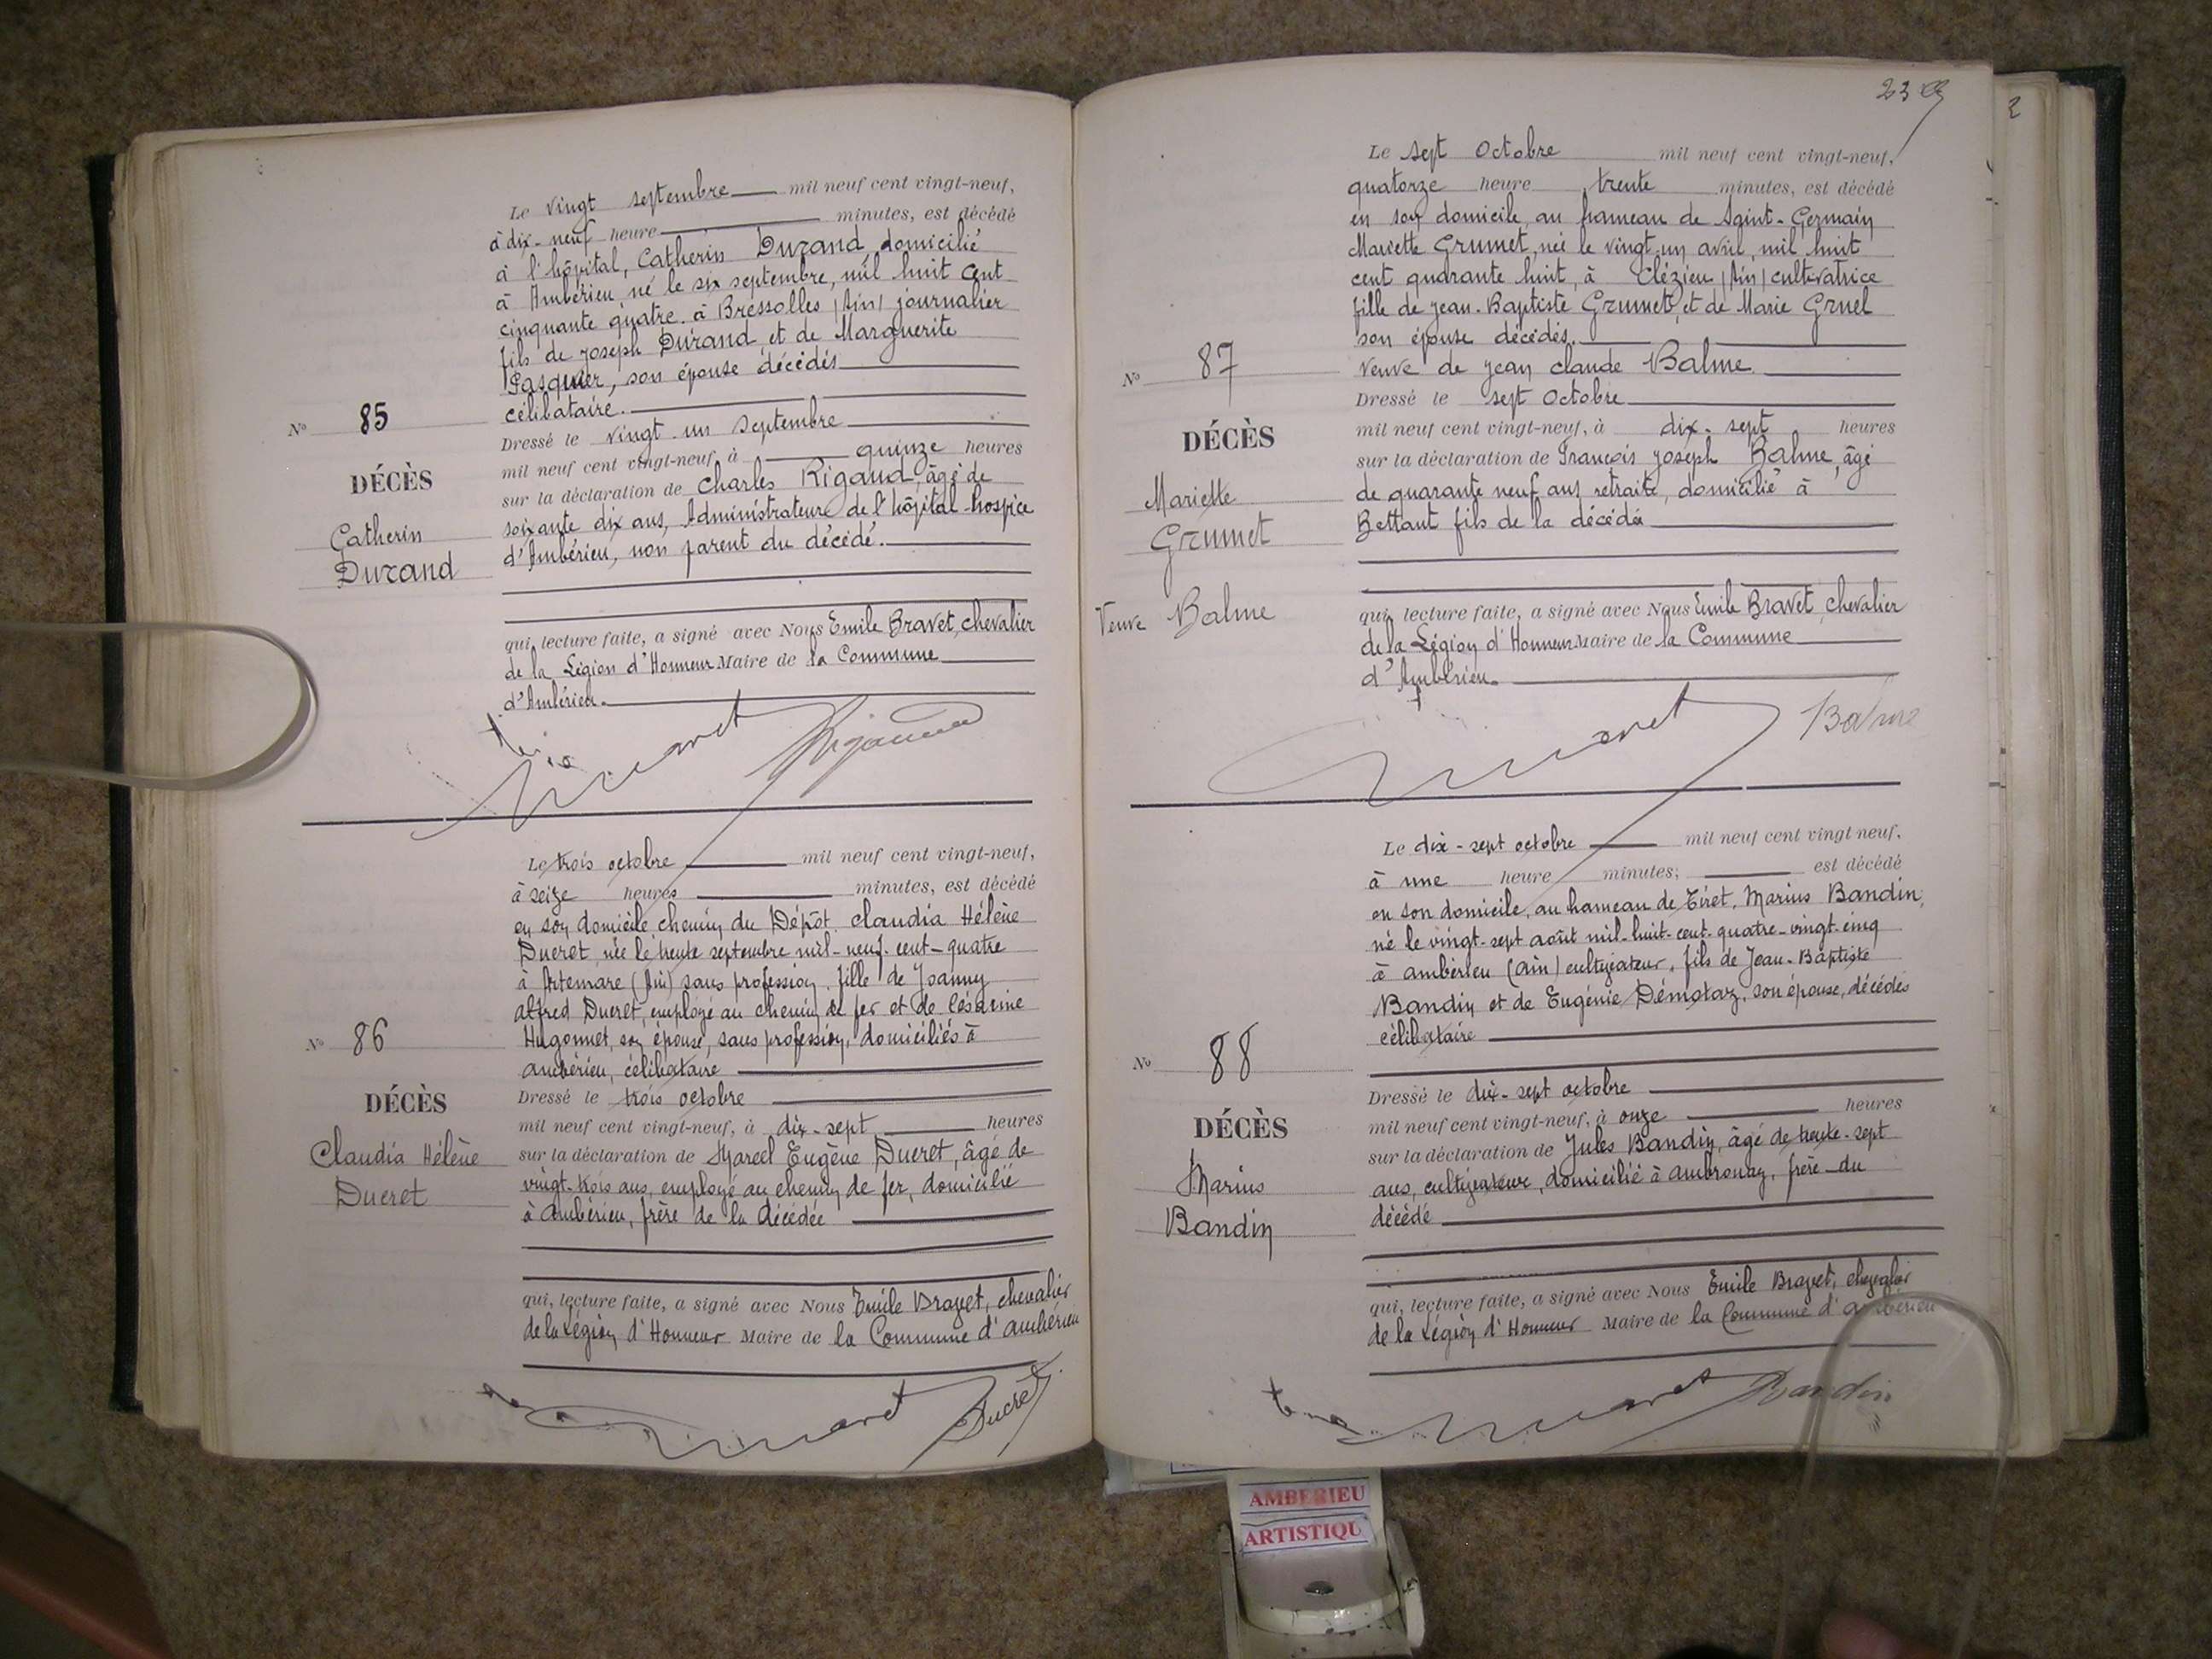 Le vingt septembre mil neuf cent vingt-neuf,
à dix-neuf heure minutes, est décédé
à l'hôpital, Catherin Durand, domicilié
à Ambérieu né le six septembre, mil huit cent
cinquante quatre à Bressolles (Ain) journalier
fils de Joseph Durand, et de Marguerite
Pasquier, son épouse décédés
célibataire.
No 85
DÉCÈS
Catherin
Durand
Dressé le vingt-un septembre
mil neuf cent vingt-neuf, à quinze heures
sur la déclaration de Charles Rigaud, âgé de
soixante dix ans, Administrateur de l'hôpital-hospice
d'Ambérieu, non parent du décédé.
qui, lecture faite, a signé avec Nous Emile Bravet, chevalier
de la Légion d'Honneur Maire de la Commune
d'Ambérieu.
Bravet Rigaud
Le trois octobre mil neuf cent vingt-neuf,
à seize heures minutes, est décédé
en son domicile chemin du Dépôt, Claudia Hélène
Ducret, née le trente septembre mil-neuf-cent-quatre
à Artemare (Ain) sans profession, fille de Joanny
Alfred Ducret, employé au chemin de fer et de Césarine
Hugonnet, son épouse, sans profession, domiciliés à
Ambérieu, célibataire
No 86
DÉCÈS
Claudia Hélène
Ducret
Dressé le trois octobre
mil neuf cent vingt-neuf, à dix-sept heures
sur la déclaration de Marcel Eugène Ducret, âgé de
vingt-trois ans, employé au chemin de fer, domicilié
à Ambérieu, frère de la décédée
qui, lecture faite, a signé avec Nous Emile Bravet, chevalier
de la Légion d'Honneur Maire de la Commune d'Ambérieu
Bravet Ducret
Le sept Octobre mil neuf cent vingt-neuf,
quatorze heure trente minutes, est décédé
en son domicile, au hameau de Saint-Germain
Mariette Grumet, née le vingt-un avril, mil huit
cent quarante huit, à Clézieu (Ain) cultivatrice
fille de Jean-Baptiste Grumet, et de Marie Gruel
son épouse décédés.
Veuve de Jean Claude Balme.
No 87
DÉCÈS
Mariette
Grumet
Veuve Balme
Dressé le sept Octobre
mil neuf cent vingt-neuf, à dix-sept heures
sur la déclaration de François Joseph Balme, âgé
de quarante neuf ans retraité, domicilié à
Bettant fils de la décédée
qui, lecture faite, a signé avec Nous Emile Bravet, chevalier
de la Légion d'Honneur Maire de la Commune
d'Ambérieu.
Bravet Balme
Le dix-sept octobre mil neuf cent vingt neuf,
à une heure minutes; est décédé
en son domicile, au hameau de Tiret, Marius Bandin,
né le vingt-sept août mil-huit-cent-quatre-vingt-cinq
à Ambérieu (Ain) cultivateur, fils de Jean-Baptiste
Bandin et de Eugénie Démotaz, son épouse, décédés
célibataire
No 88
DÉCÈS
Marius
Bandin
Dressé le dix-sept octobre
mil neuf cent vingt-neuf, à onze heures
sur la déclaration de Jules Bandin, âgé de trente-sept
ans, cultivateur, domicilié à Ambronay, frère du
décédé
qui, lecture faite, a signé avec Nous Emile Bravet, chevalier
de la Légion d'Honneur Maire de la Commune d'Ambérieu
Bravet Bandin
AMBERIEU
ARTISTIQU